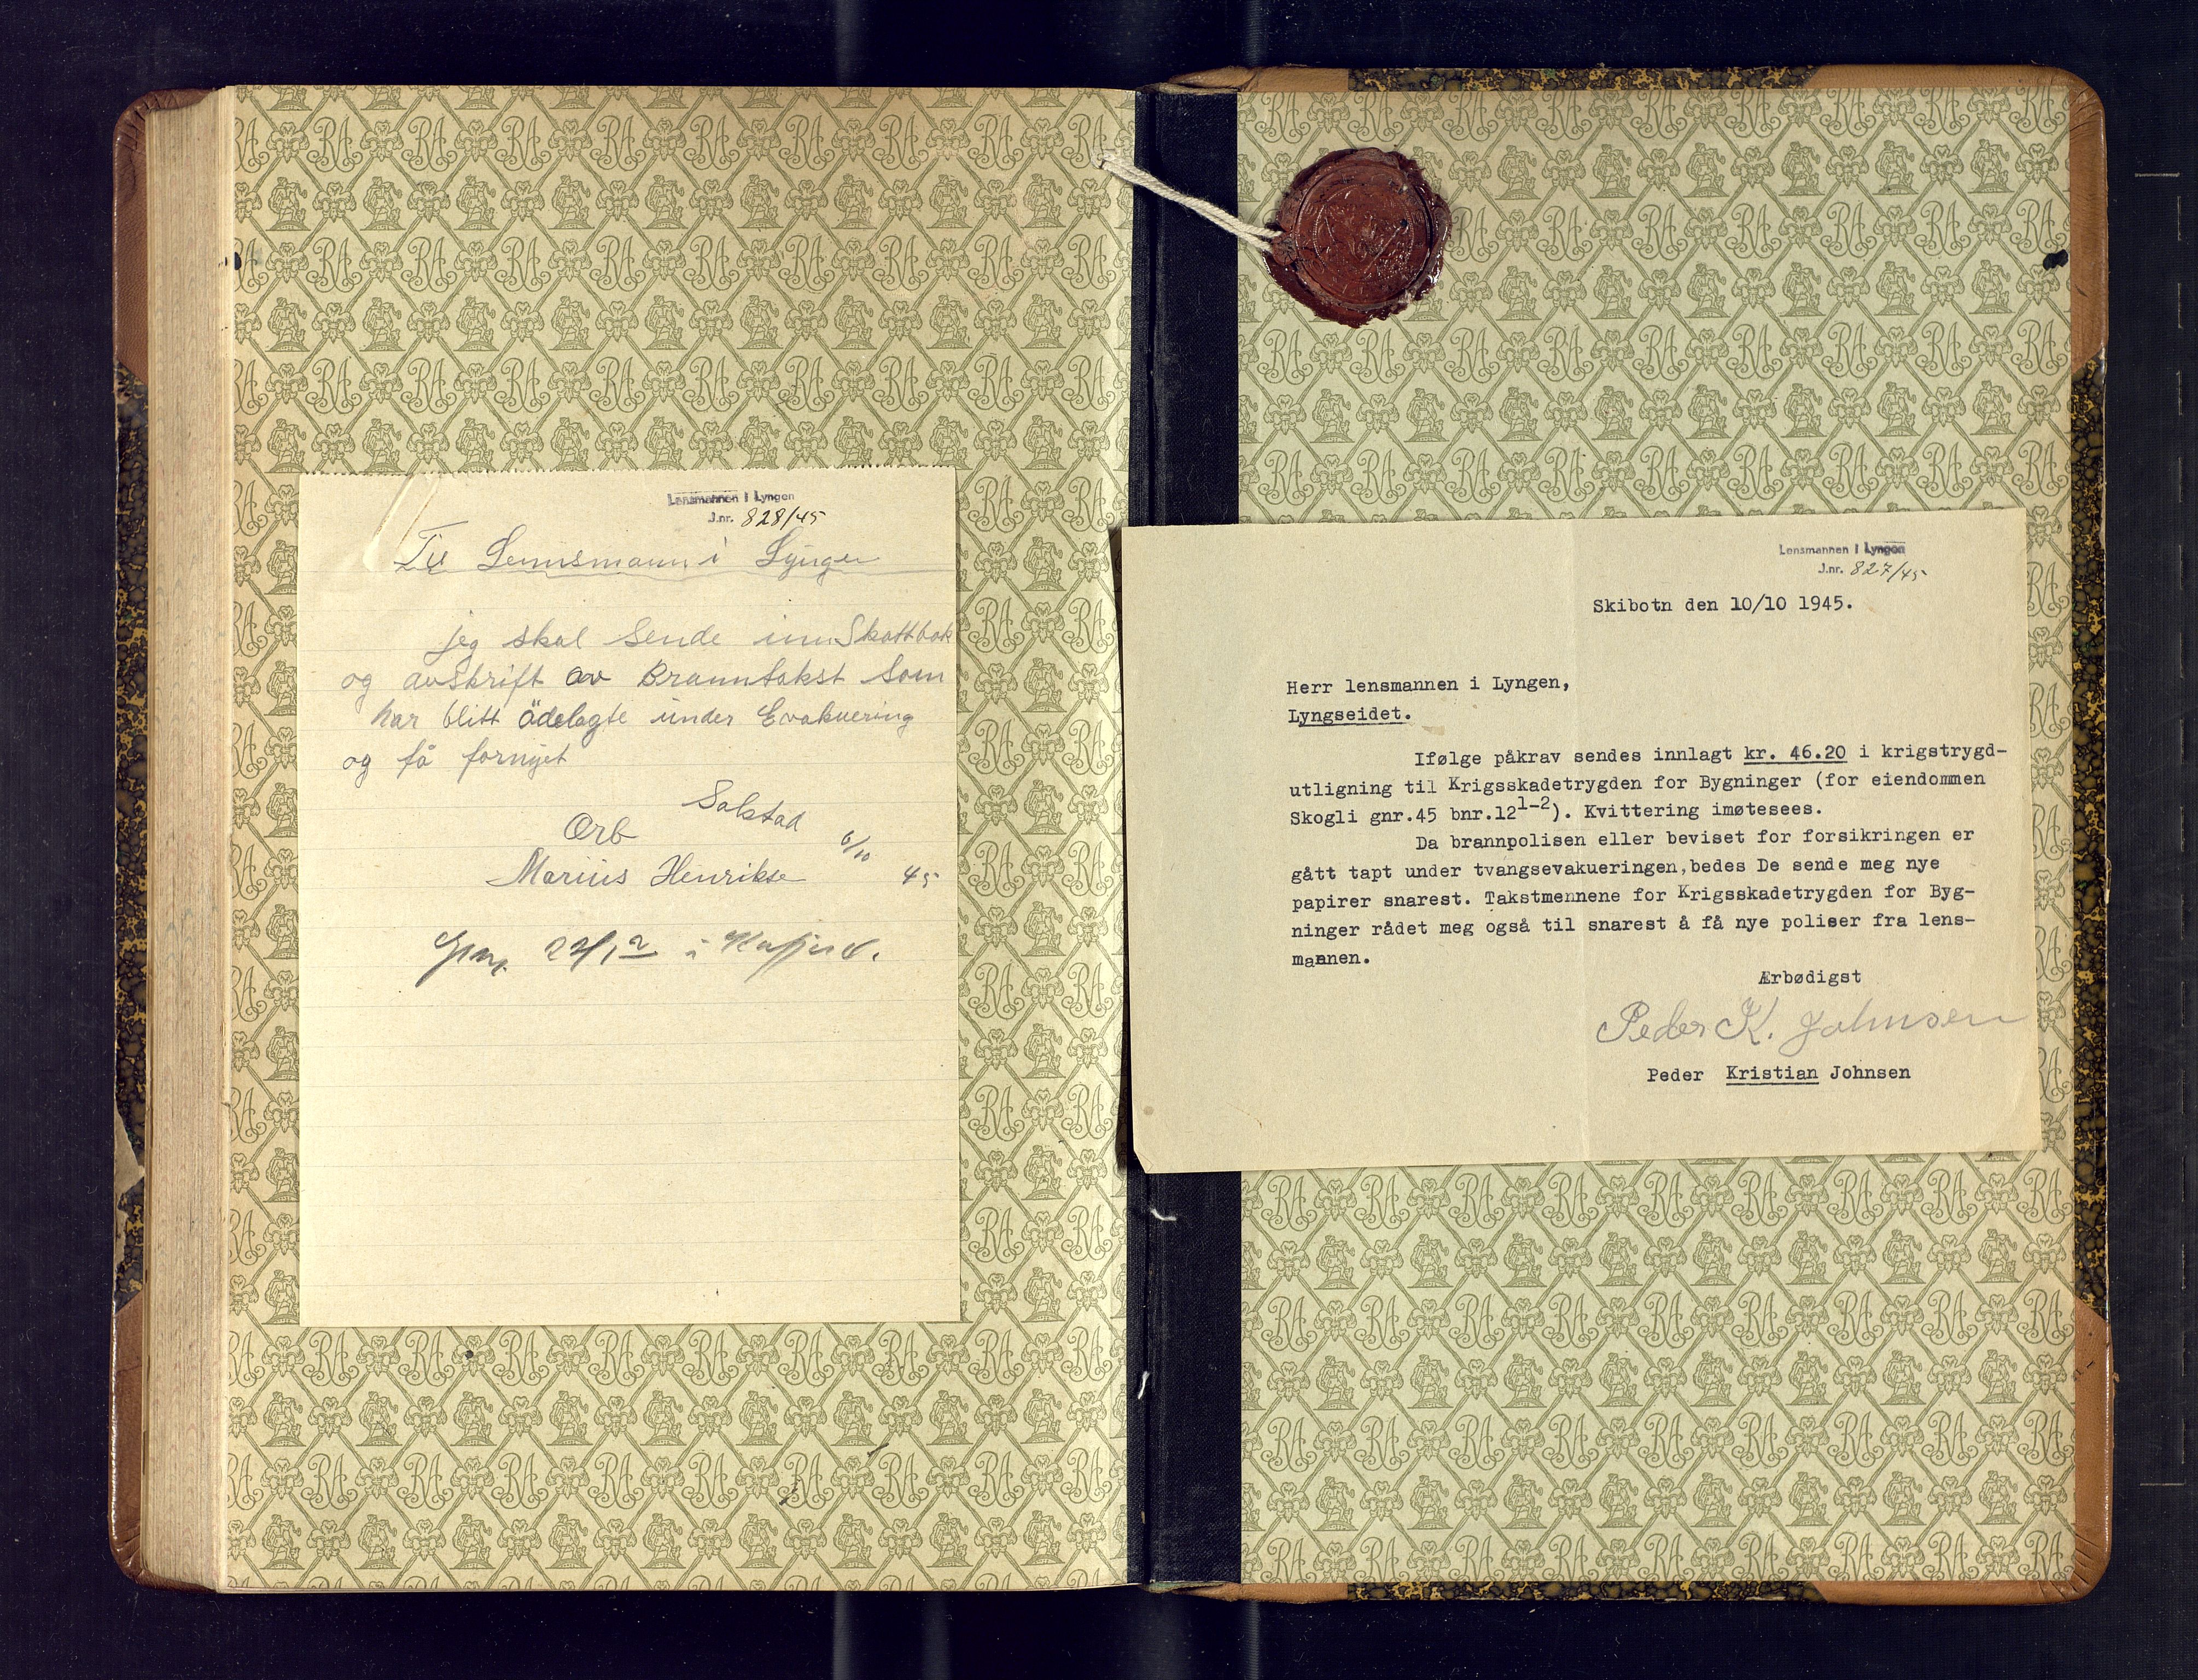 Lensmannen i Lyngen
J.nr. 828/45
Til Lennsmann i Lyngen
jeg skal sende inn Skattbok
og avskrift av Branntakst som
har blitt ödelagte under Evakuering
og få fornyet
Salstad
Örb 6/10
Marius Henrikse 45
22/12 i Kåfjord.
Lensmannen i Lyngen
J.nr. 827/45
Skibotn den 10/10 1945.
Herr lensmannen i Lyngen,
Lyngseidet.
Ifølge påkrav sendes innlagt kr. 46.20 i krigstrygd-
utligning til Krigsskadetrygden for Bygninger (for eiendommen
Skogli gnr.45 bnr.12 1-2). Kvittering imøtesees.
Da brannpolisen eller beviset for forsikringen er
gått tapt under tvangsevakueringen,bedes De sende meg nye
papirer snarest. Takstmennene for Krigsskadetrygden for Byg-
ninger rådet meg også til snarest å få nye poliser fra lens-
mannen.
Ærbødigst
Peder K. Johnsen
Peder Kristian Johnsen